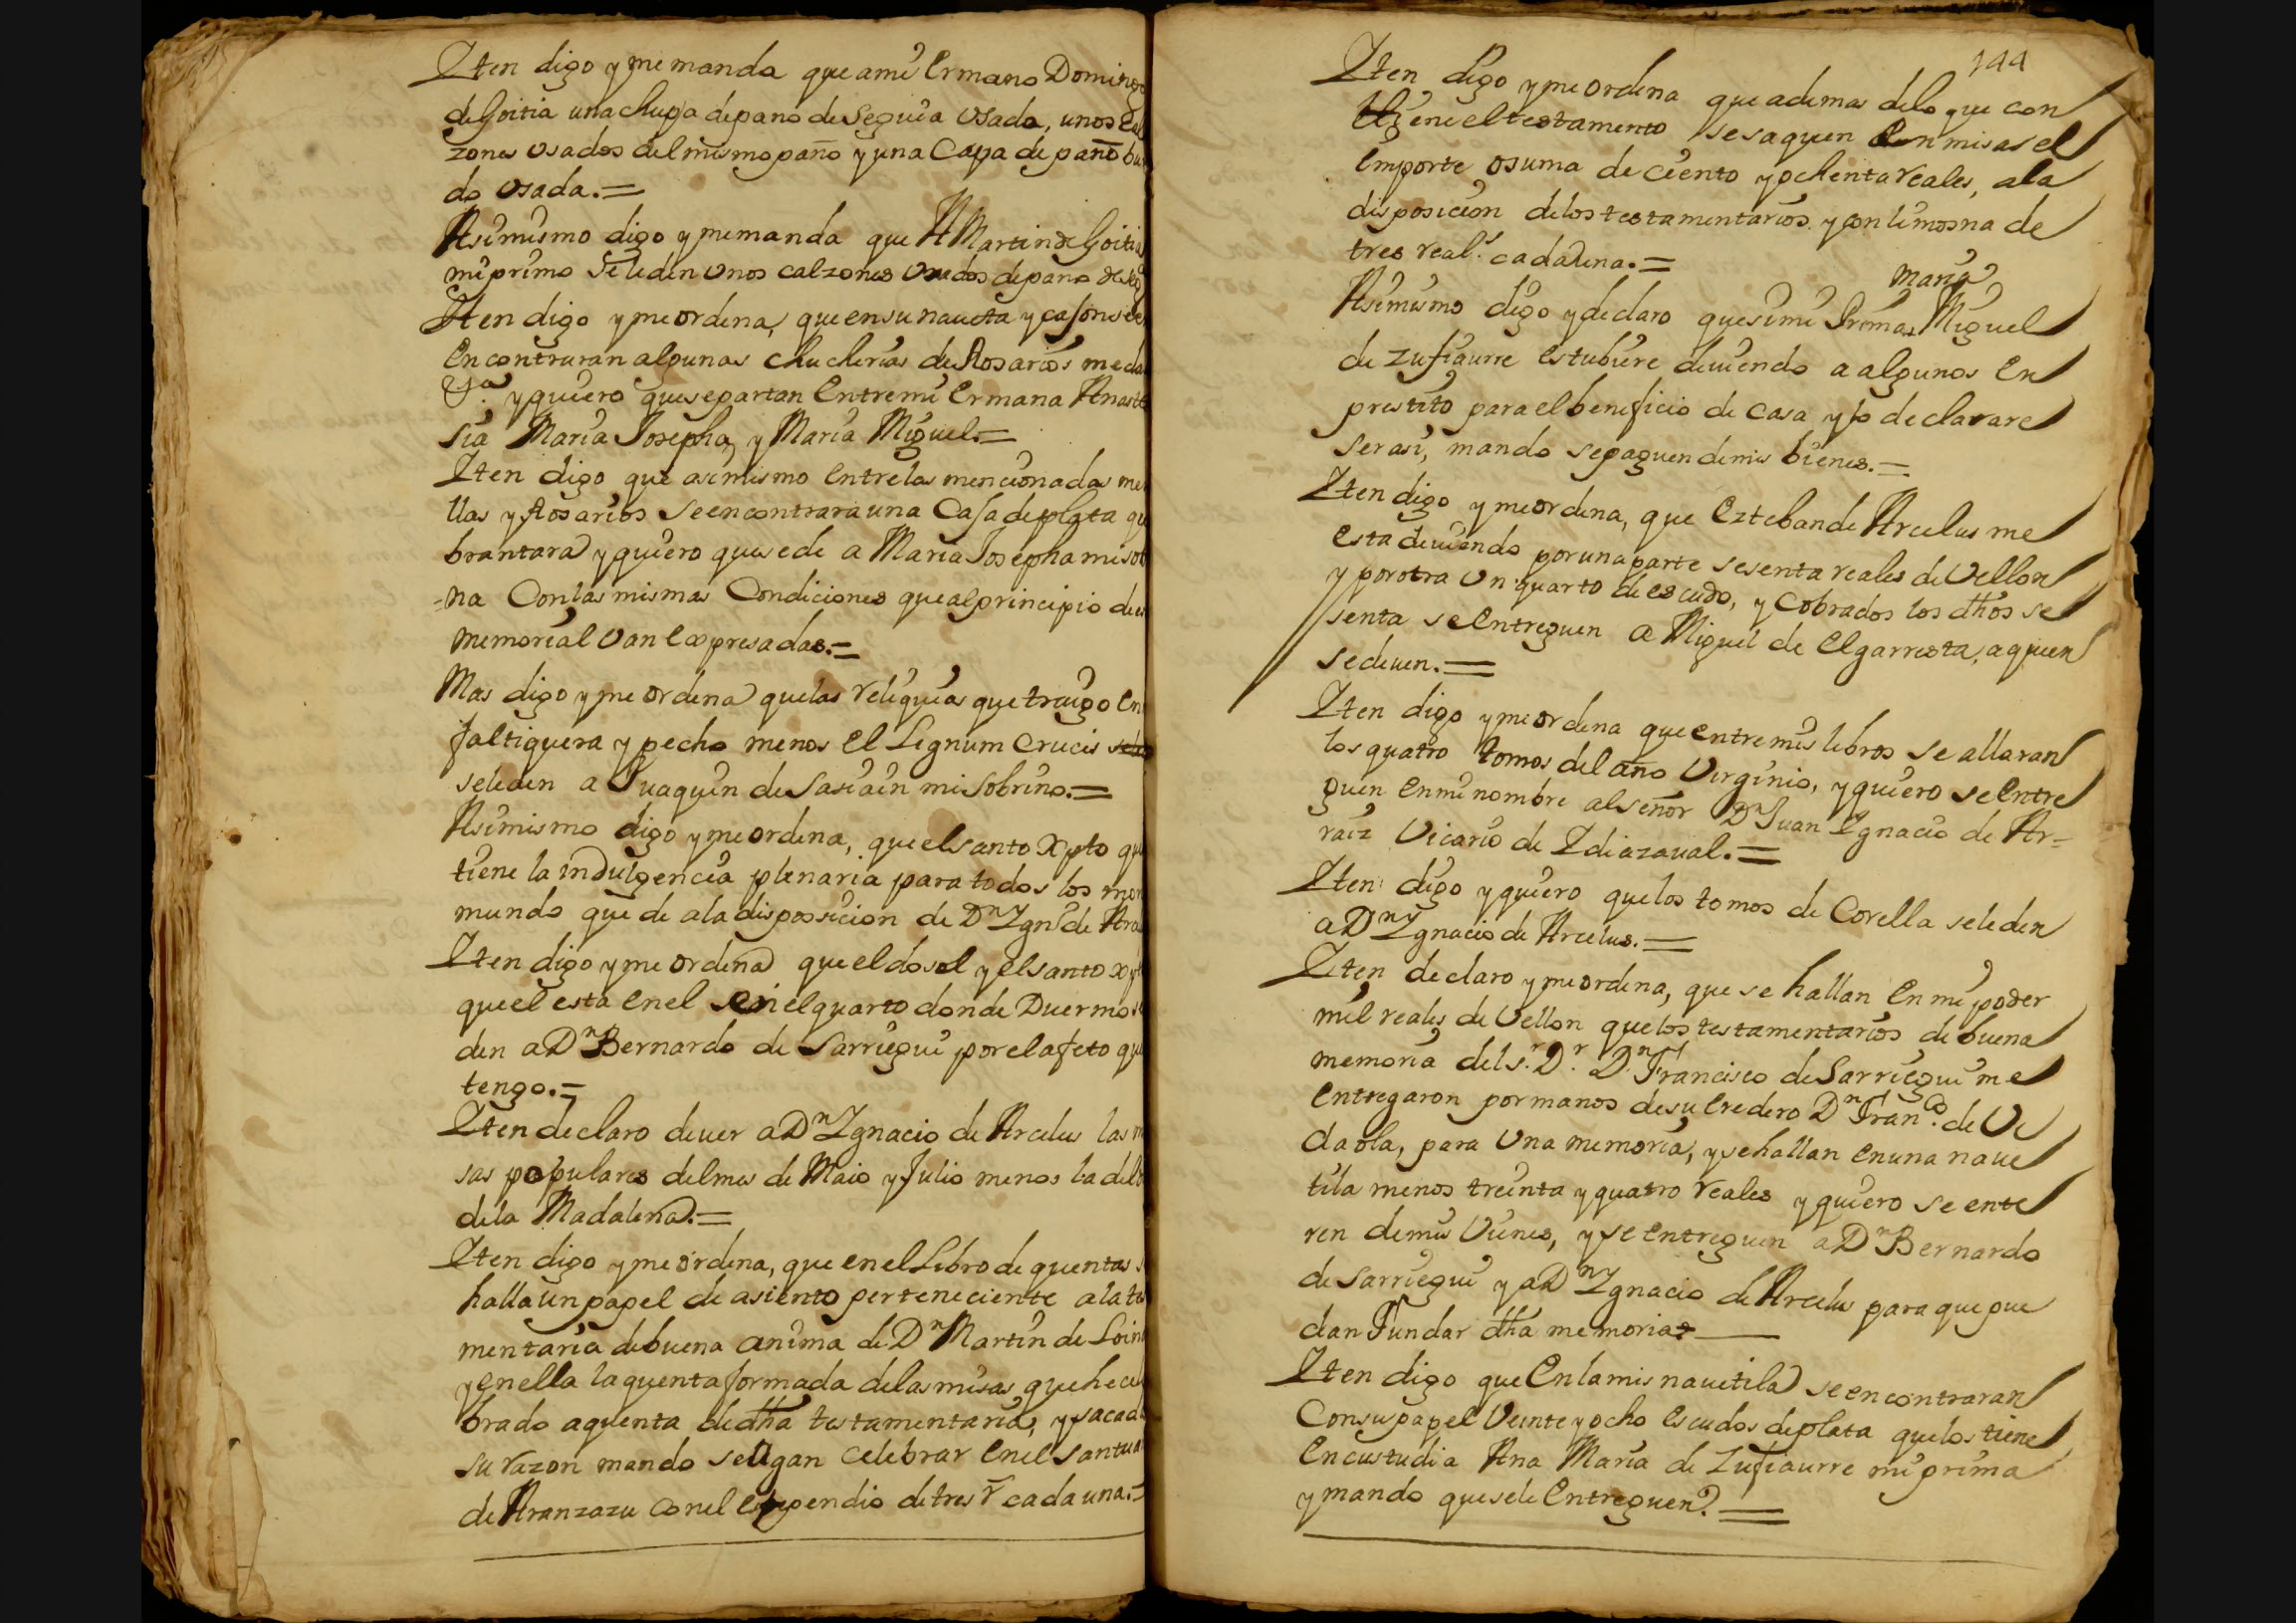 Iten digo y me manda que ami Ermano Domingo
de Goitia una chupa de pano de Seguia Usada, unos Cal
zones usados del mismo paño y una Capa de paño bu
do Usada.=
Asimismo digo y me manda que A Martin de Goitia
mi primo Se le den Unos calzones Usados de pano de Seg
Iten digo y me ordena, que en su naveta y cajones se
Encontraran algunas chucherias de Rosarios meda
y quiero que se partan Entre mi Ermana Anasta
sia Maria Josepha, y Maria Miguel.=
Iten digo que asimismo Entre las mencionadas me
llas y Rosarios Se encontrara una Caja de plata qu
brantara y quiero que se de a Maria Josepha mi sob
na Con las mismas Condiciones que al principio de es
memorial Van Expresadas.=
Mas digo y me ordena que las reliquias que traigo En
faltiquera y pecho menos El Lignum Crucis
se le den a Juaquin de Sasiain mi Sobrino.=
Asimismo digo y me ordena, que el santo Xpto qu
tiene la indulgencia plenaria para todos los mor
mundo que de ala disposicion de Dn Ign.o de Ara
Iten digo y me ordena que el dosel y el santo xpt
que el esta En el sen el quarto donde Duermo s
den a Dn Bernardo de Sarriegui por el afeto qu
tengo.=
Iten declaro dever a Dn Ignacio de Arcelus las m
sas populares del mes de Maio y Julio menos la del
de la Madalena.=
Iten digo y me ordena, que en el Libro de quentas s
halla un papel de asiento perteneciente ala te
mentaria de buena anima de Dn Martin de Loin
y en ella la quenta formada de las misas que he cel
brado a quenta de dha testamentaria, y sacada
su razon mando se agan celebrar En el Santua
de Aranzazu con el Estipendio de tres rs cada una.=
144
Iten digo y me ordena que ademas de lo que con
tiene el testamento se saquen En misas el
Importe o suma de ciento y ochenta reales, ala
disposicion de los testamentarios y con limosna de
tres real.s cada una.=
Maria
Asimismo digo y declaro que si mi Prima Miguel
de Zufiaurre Estubiere deviendo a algunos En
prestito para el beneficio de Casa y lo declarare
ser asi, mando se paguen de mis bienes.=
Iten digo y me ordena, que Esteban de Arcelus me
Esta deviendo por una parte sesenta reales de Vellon
y por otra Un quarto de escudo, y Cobrados los dhos se
senta se Entreguen a Miguel de Elgarresta, a quien
se deven.=
Iten digo y me ordena que entre mis libros se allaran
los quatro tomos del año Virginio, y quiero se Entre
guen En mi nombre al señor Dn Juan Ignacio de Ar=
raiz Vicario de Idiazaval.=
Iten digo y quiero que los tomos de Corella se le den
a Dn Ignacio de Arcelus.=
Iten declaro y me ordena, que se hallan En mi poder
mil reales de Vellon que los testamentarios de buena
memoria del s.r D.r Dn Francisco de Sarriegui me
Entregaron por manos de su Eredero Dn Fran.co de Ur
daola, para Una memoria, y se hallan en una nave
tila menos treinta y quatro reales y quiero se ente
ren de mis Vienes, y se entreguen a Dn Bernardo
de Sarriegui y a Dn Ignacio de Arcelus para que pue
dan Fundar dha memoria
Iten digo que En la mis navetila se encontraran
Con su papel Veinte y ocho Escudos de plata que los tiene
En custudia Ana Maria de Zufiaurre mi prima
y mando que se le Entreguen.=